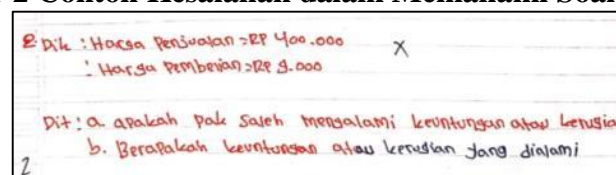 2 Contoh Kesalahan dalam Memahami Soal
2 Dik : Harga Penjualan = RP 400.000 X
: Harga Pembelian = RP 9.000
Dit : a. apakah pak saleh mengalami keuntungan atau kerugia
b. Berapakah keuntungan atau kerugian yang dialami
2